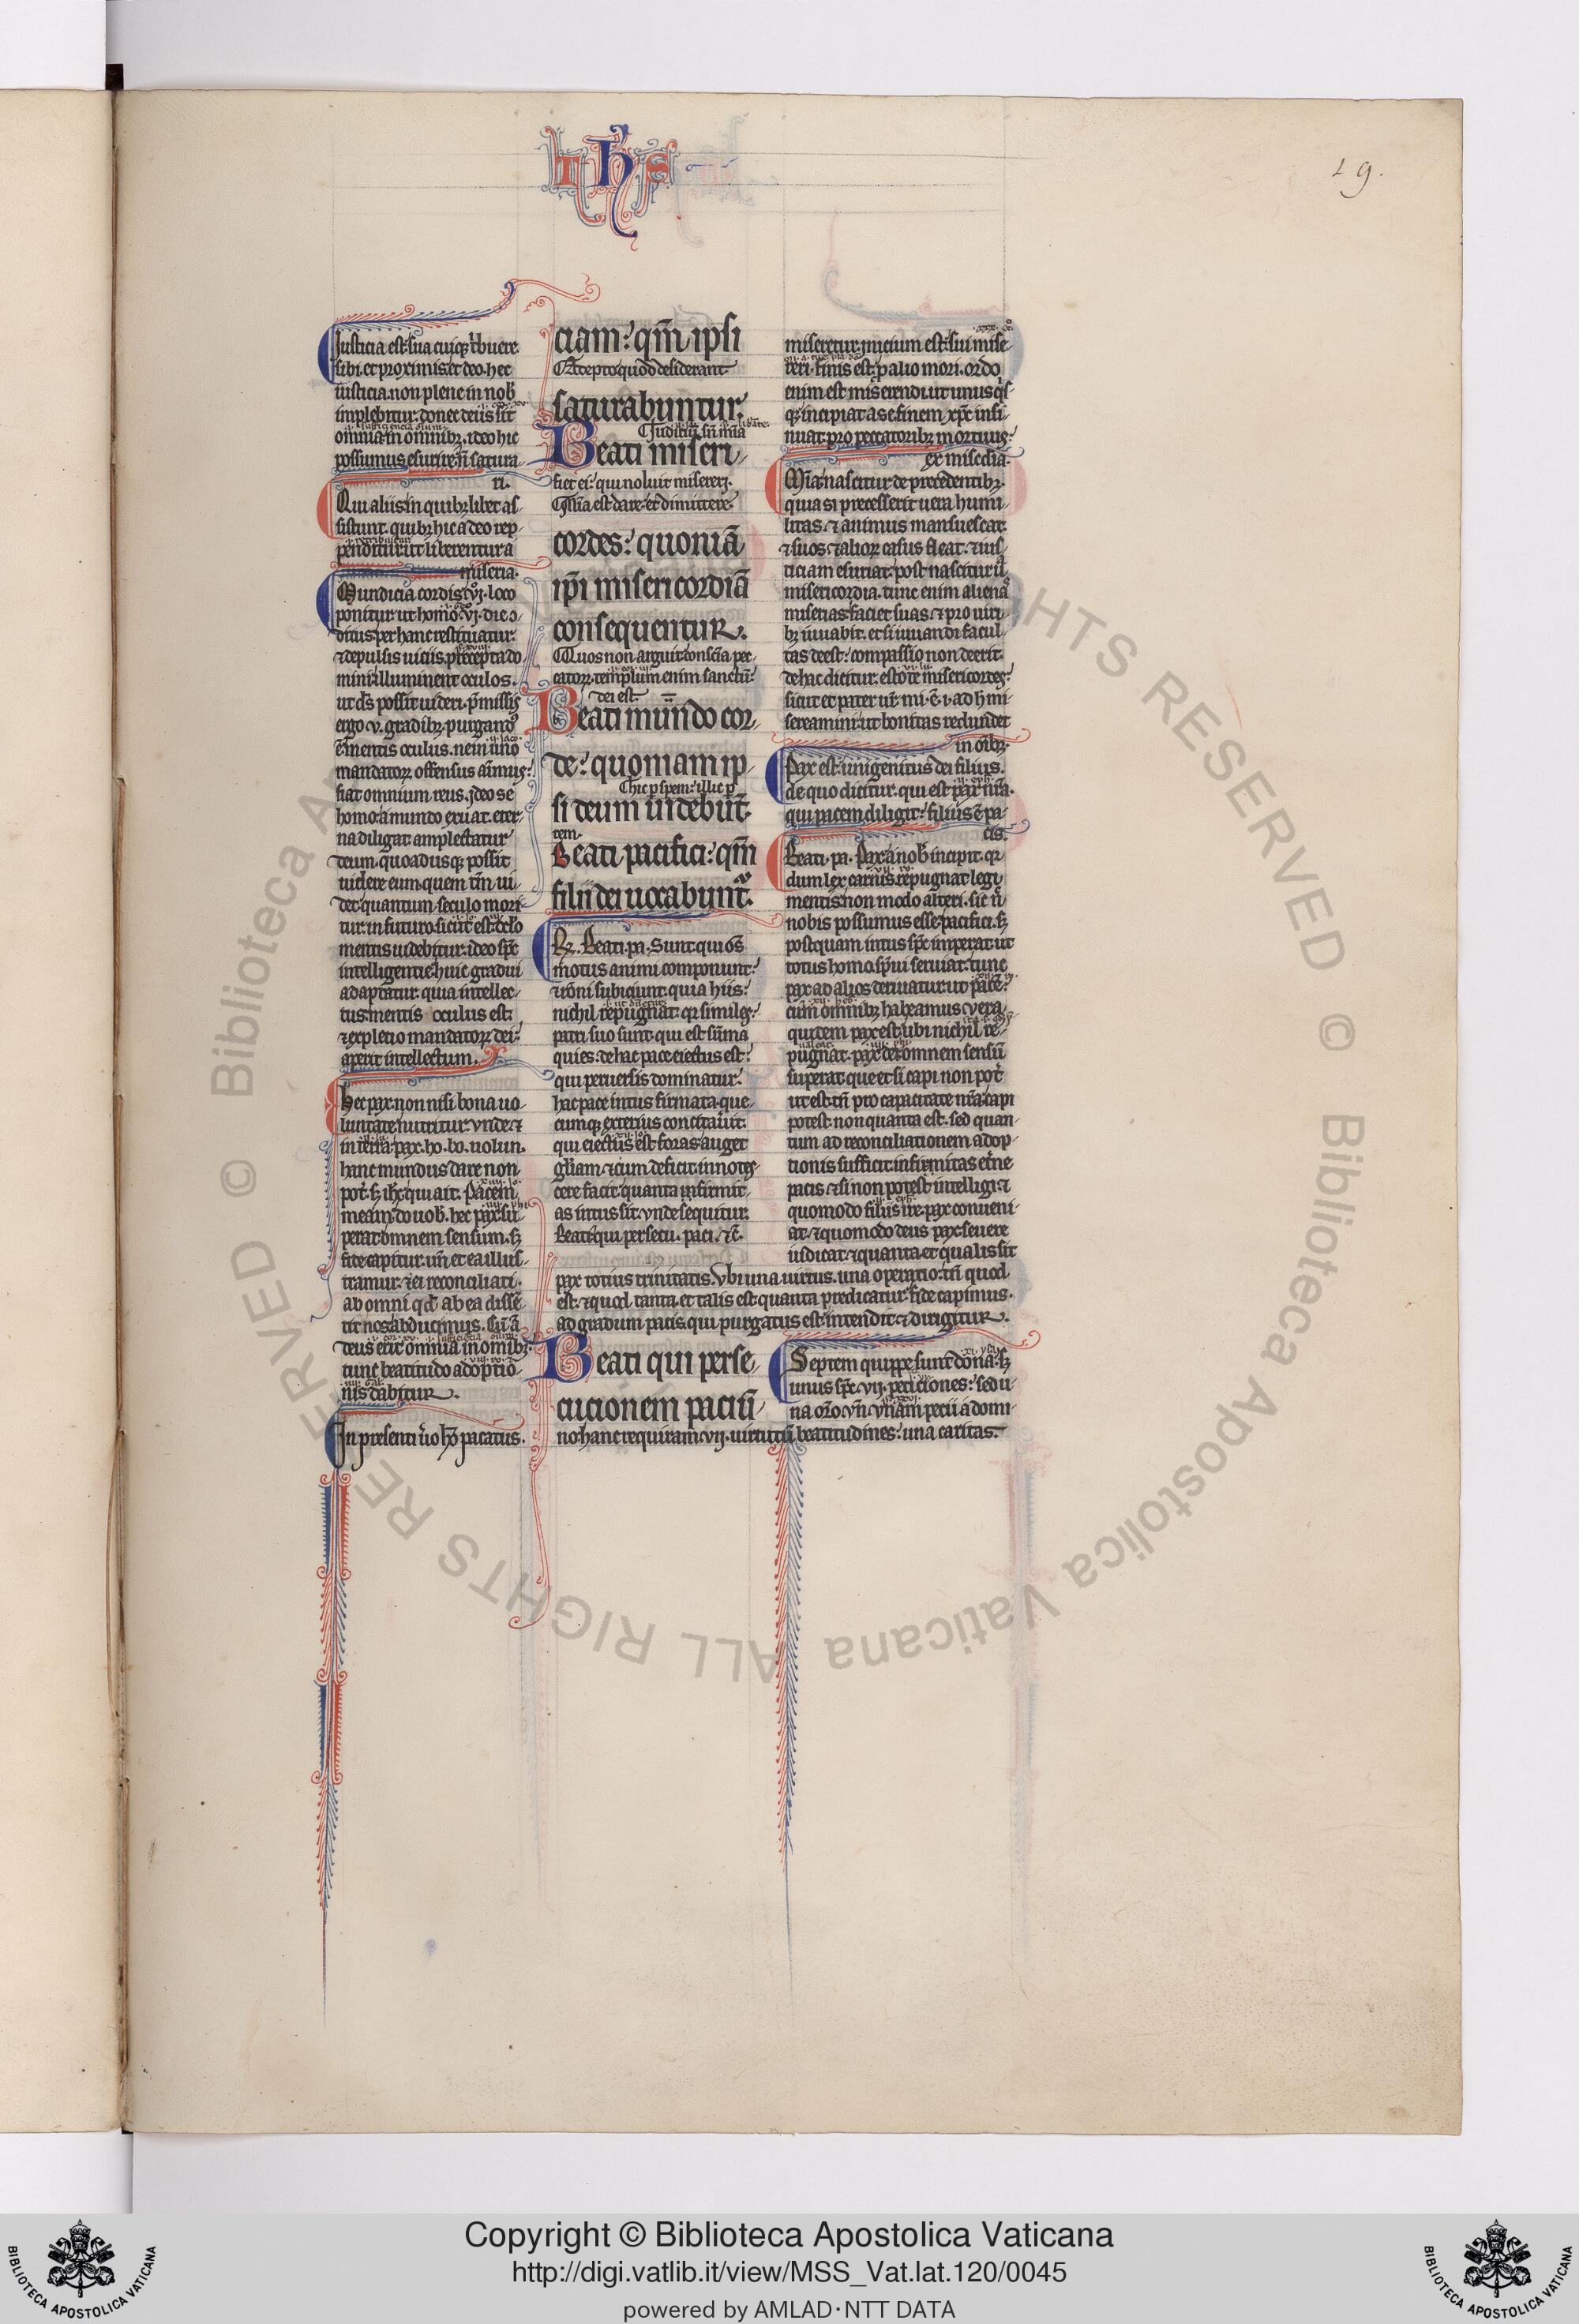 Ihs
19.
Justicia est sua cuiq; t'buere.
sibi. et proximis. et deo. hec
iusticia. non plene in nob'
implebitur. donec deus sit
omnia in omnibz. ideo hic
possumus esurire. n̄ satura
ri.
Qui aliis in quibz libet as
sistunt. quibz hic a deo rep
penditur. ut liberentur a
miseria.
Mundicia cordis. vj. loco
ponitur. ut homo. vj. die
ditus per hanc restituatur.
⁊ depulsis uiciis. precepta do
mini illuminent oculos.
ut ds̄ possit uideri. p̄missis
ergo .v. gradibz. purgand'
ē mentis oculus. ne in uno
mandatoꝝ offensus animus:
fiat omnium reus. ideo se
homo. a mundo exuat. eter
na diligat. amplectatur
deum. quoadusq; possit
uidere eum. quem tm̄ ui
det. quantum seculo mori
tur. in futuro. sicut est. oc'lo
mentis uidebitur. ideo sp̄c
intelligentie. huic gradui
adaptatur. quia intellec
tus. mentis oculus est.
⁊ expletio mandatoꝝ dei:
aperit intellectum.
Hec pax. non nisi bona uo
luntate. nutritur. vnde ⁊
in terra. pax. ho. bo. uolun.
hanc mundus dare non
pot'. sꝫ ihc̄ qui ait. Pacem
meam. do uob'. hec pax su
perat omnem sensum. sꝫ
fide capitur. un̄ et ea illus
tramur. ⁊ ei reconciliati.
ab omni qd' ab ea dissē
tit nos abducimus. Cū ā
deus erit omnia in omnibz.
tunc beatitudo adoptio
nis dabitur.
In presenti u'o pacatus.
ciam: qm̄ ipsi
Accepto quod desiderant
saturabuntur.
Iudiciū sn̄ mīa
Beati miseri
fiet ei: qui noluit misereri.
Mīa est dare et dimittere.
cordes: quoniā
ip̄i misericordiā
consequentur.
Quos non arguit conscīa pec
catoꝝ. templum enim sanctū:
dei est.
Beati mundo cor
de: quoniam ip
Hic p̄ spem: illic p̄
si deum uidebūt.
rem.
Beati pacifici: qm̄
filii dei uocabunt'.
Beati. pa. Sunt qui os̄
motus animi componunt:
⁊ rōni subiciunt. quia hiis:
nichil repugnat. qꝛ similes:
patri suo sunt. qui est sūma
quies. de hac pace eiectus est:
qui peruersis dominatur.
hac pace intus firmata. que
cumq; exterius concitau'it.
qui eiectus est foras. auget
gl'iam. ⁊ cum deficit. innotes
cere facit quanta infirmit
as intus sit. vnde sequitur.
Beati qui persecu. paci. ⁊c̄.
miseretur. inicium est: sui mise
reri. finis est: p̄ alio mori. ordo
enim est miserendi. ut unusq's
q; incipiat a se. finem xp̄c insi
nuat. pro peccatoribz mortuus:
ex misc̄dia.
Mīa nascitur de precedentibz.
quia si precesserit uera humi
litas. ⁊ animus mansuescat.
⁊ suos ⁊ alioꝝ casus fleat. ⁊ ius
ticiam esuriat: post nascitur ūa
misericordia. tunc enim alienas
miserias. faciet suas. ⁊ pro uiri
bz iuuabit. et si iuuandi facul
tas deest: compassio non deerit.
de hac dicitur. estote misericordes:
sicut et pater ur̄. mi. ē. i. ad h̄ mi
sereamini. ut bonitas redundet
in oībz.
Pax est: unigenitus dei filius.
de quo dicitur. qui est pax nr̄a.
qui pacem diligit: filius ē pa
cis.
Beati. pa. Pax a nob' incipit. qꝛ
dum lex carnis repugnat legi
mentis. non modo alteri. sic n̄
nobis possumus esse pacifici. sꝫ
postquam intus sp̄c imperat. ut
totus homo. sp̄ui seruiat. tunc
pax ad alios deriuatur. ut pacē:
cum omnibz habeamus. vera
quidem pax est: ubi nichil re
pugnat. pax dei omnem sensū
superat. que et si capi non pot'
ut est. tn̄ pro capacitate nr̄a capi
potest. non quanta est. sed quan
tum ad reconciliationem adop
tionis sufficit. infirmitas et'ne
pacis. ⁊ si non potest intelligi. ⁊
quomodo filiis ire. pax conueni
at. ⁊ quomodo deus pax. seuere
iudicat. ⁊ quanta et qualis sit
pax totius trinitatis. Vbi una uirtus. una operatio. tn̄ quod
est. ⁊ quod tanta et talis est quanta predicatur. fide capimus.
ad gradum pacis. qui purgatus est: intendit. ⁊ dirigitur.
Beati qui perse
cucionem paciū
Septem quippe sunt dona. sꝫ
unus sp̄c. vij. peticiones: sed u
na or̄o. vn̄. vnam pecii a domi
no. hanc requiram. vij. uirtutū beatitudines: una caritas.
Copyright © Biblioteca Apostolica Vaticana
http://digi.vatlib.it/view/MSS_Vat.lat.120/0045
powered by AMLAD·NTT DATA
BIBLIOTECA APOSTOLICA VATICANA
BIBLIOTECA APOSTOLICA VATICANA
© Biblioteca Apostolica Vaticana ALL RIGHTS RESERVED